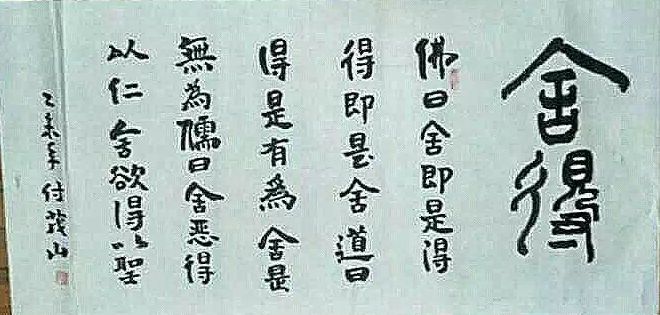 舍得
佛曰舍即是得
得即是舍道曰
得是有為舍是
無為儒曰舍恶得
以仁舍欲得以聖
乙未年付茂山